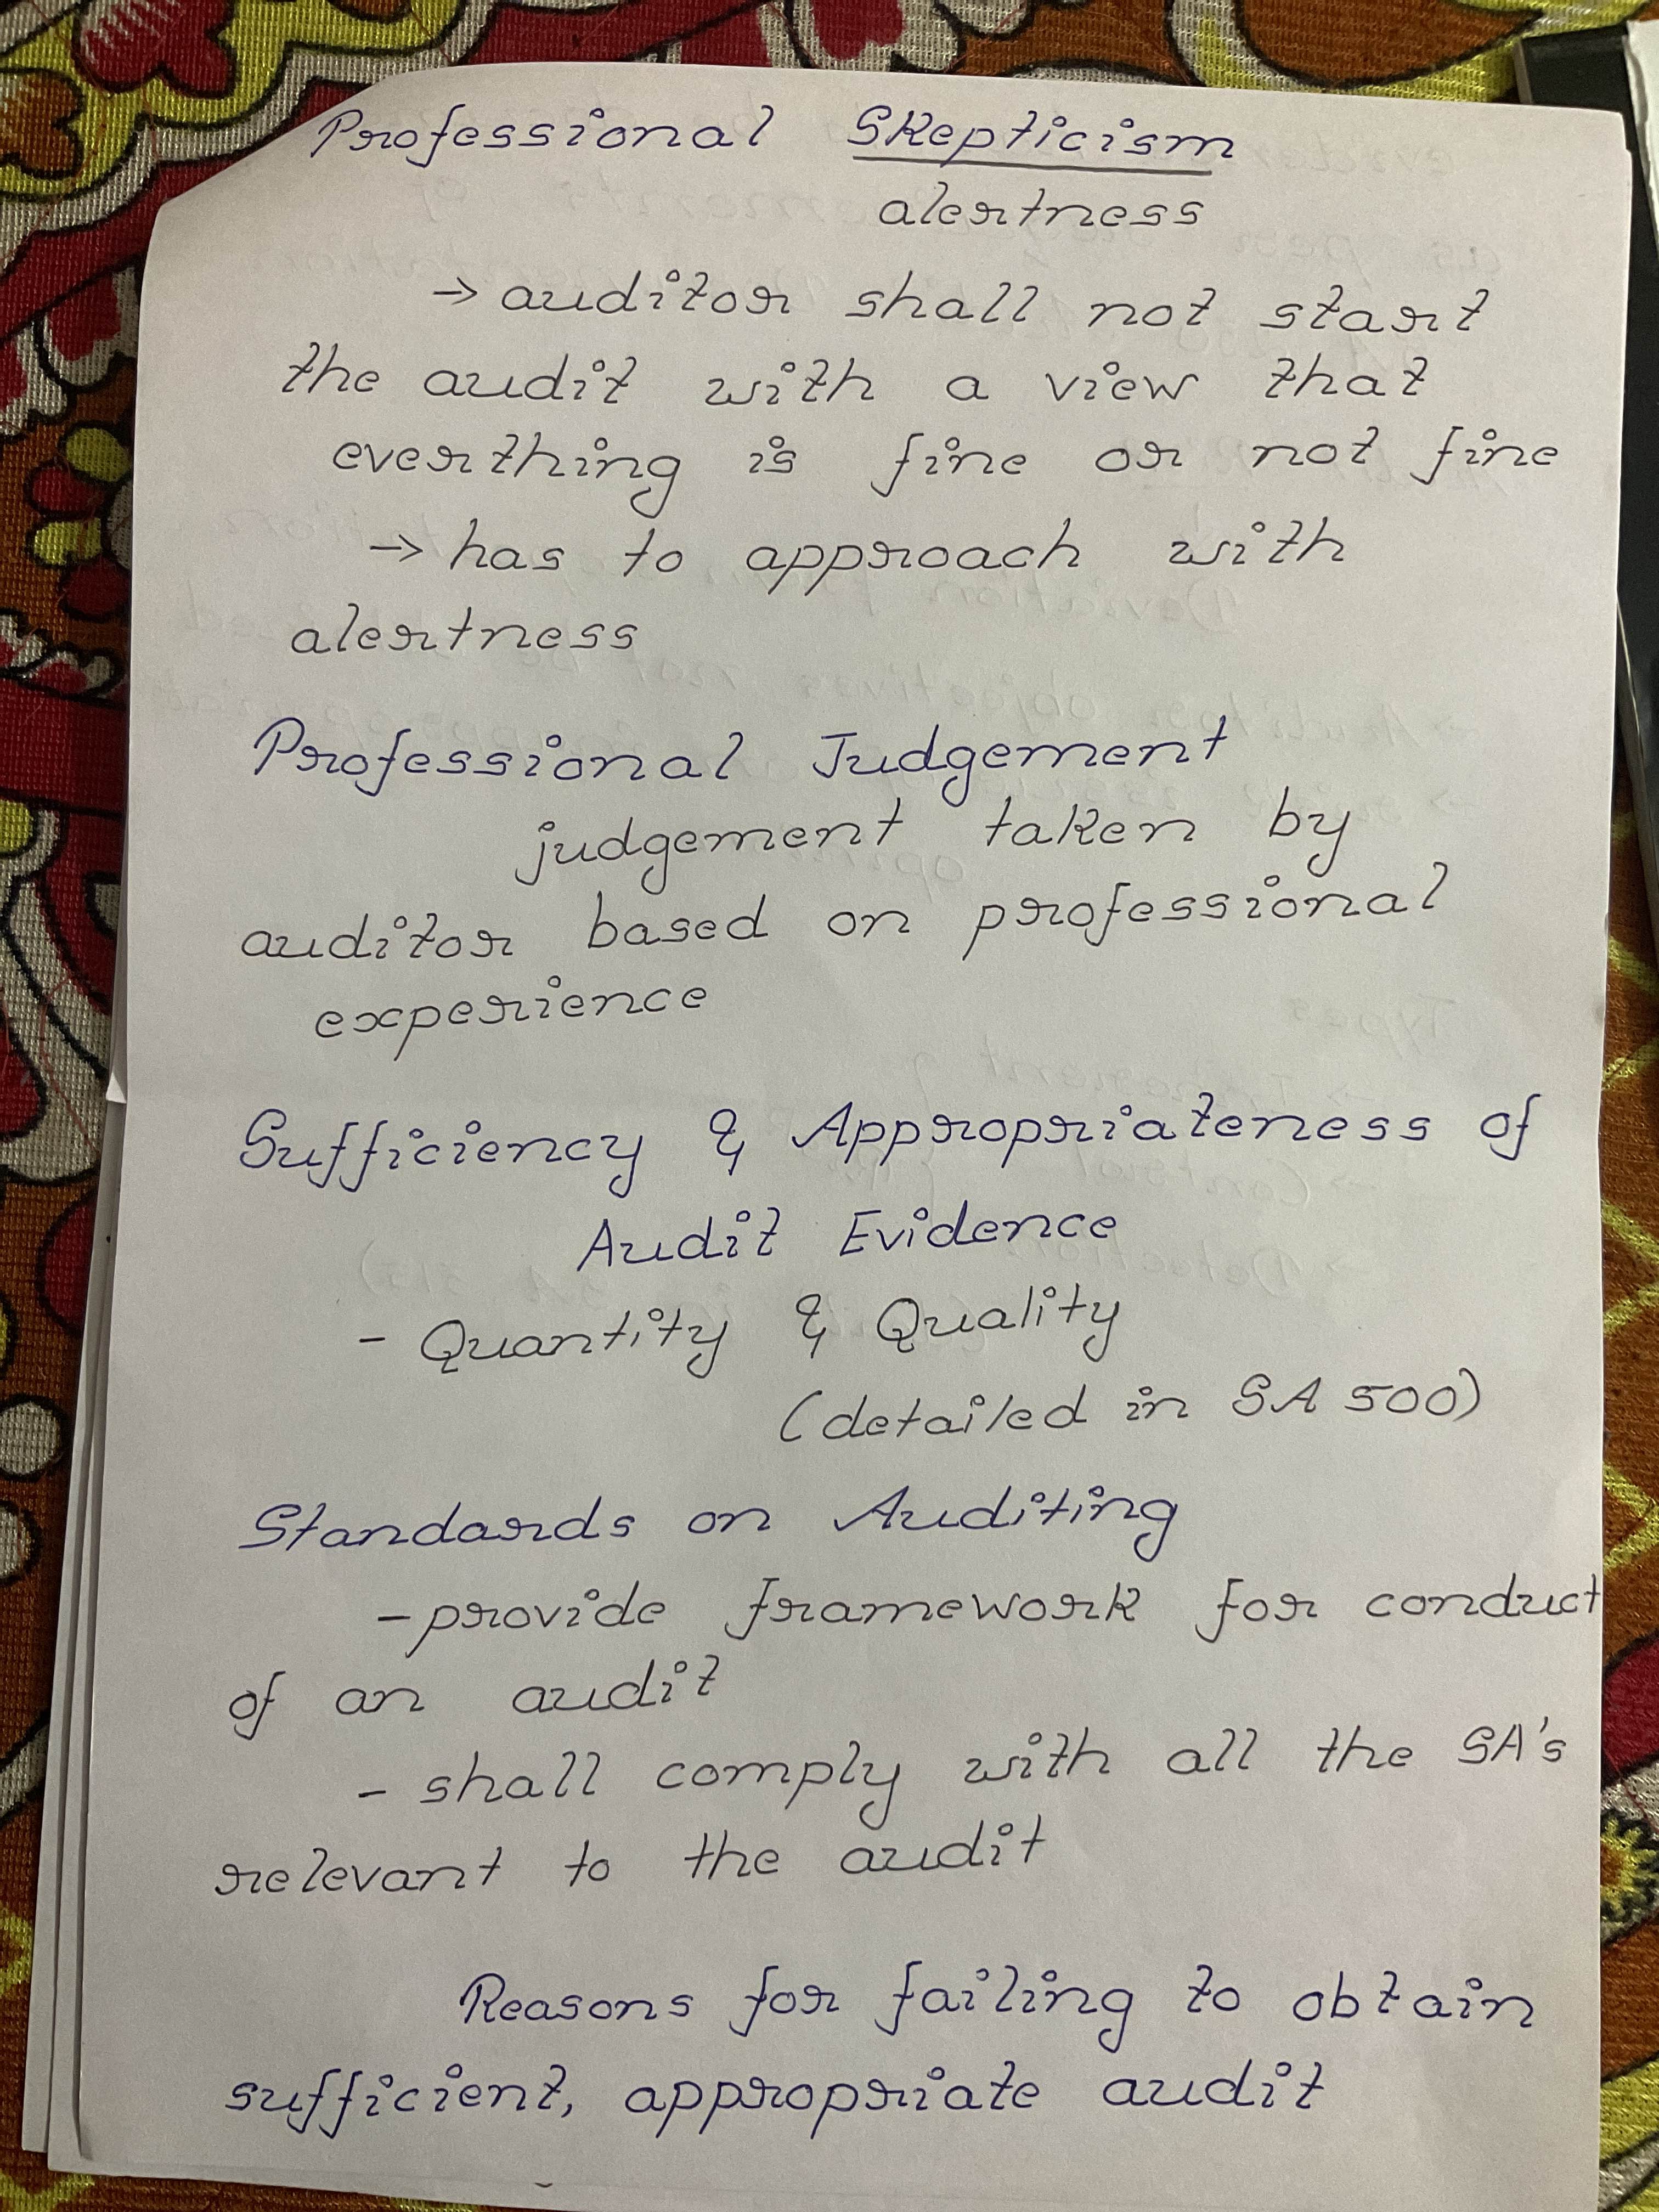 Professional Skepticism
alertness
→ auditor shall not start
the audit with a view that
everthing is fine or not fine
→ has to approach with
alertness
Professional Judgement
judgement taken by
auditor based on professional
experience
Sufficiency & Appropriateness of
Audit Evidence
- Quantity & Quality
(detailed in SA 500)
Standards on Auditing
- provide framework for conduct
of an audit
- shall comply with all the SA's
relevant to the audit
Reasons for failing to obtain
sufficient, appropriate audit